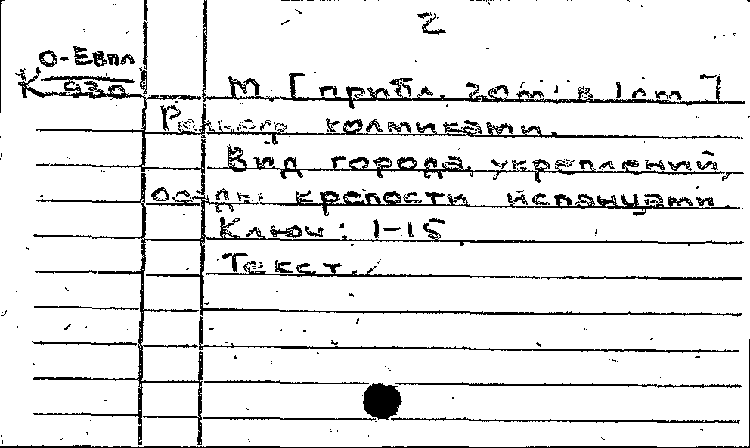 2
О-Евпл
К 930
М. [прибл. 20m. в 1 см]
Рельеф холмиками.
Вид города, укреплений,
осады крепости испанцами.
Ключ: 1-15
Текст.